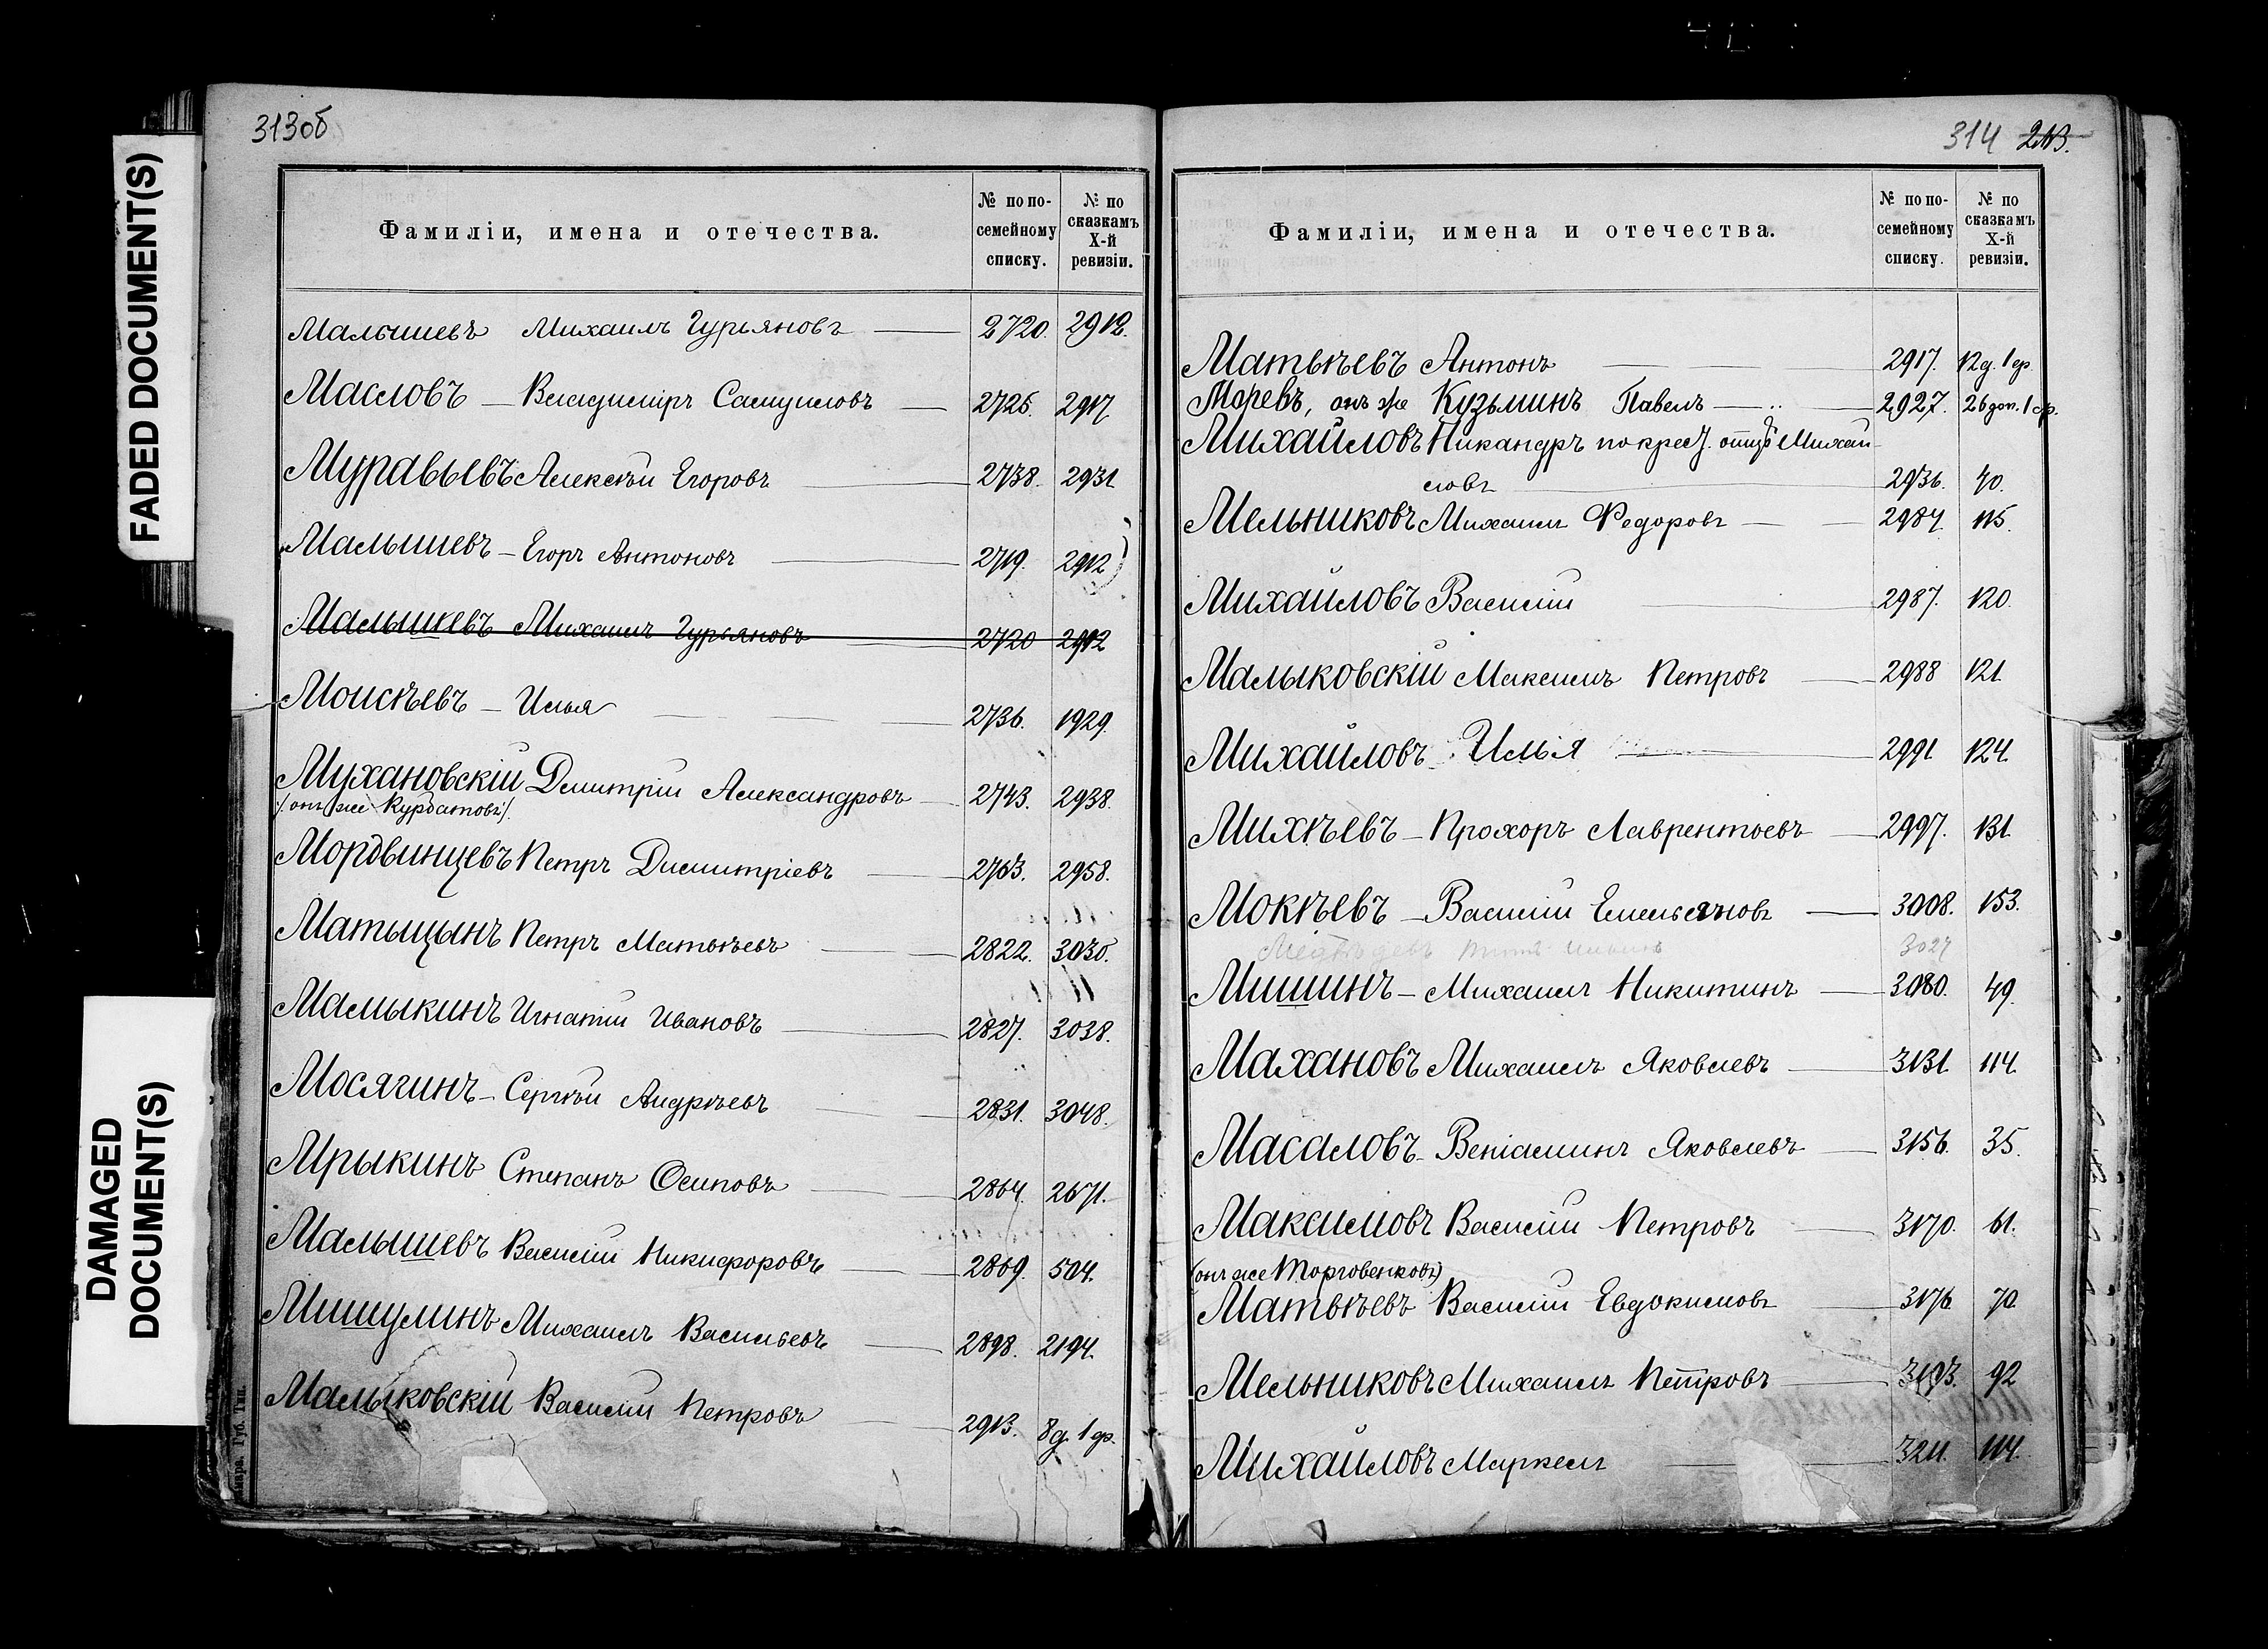 FADED DOCUMENT(S)
DAMAGED
DOCUMENT(S)
313об
Фамиліи, имена и отечества.
№ по по-
семейному
списку.
№ по
сказкамъ
X-й
ревизіи.
Малышевъ Михаилъ Гурьяновъ 2720. 2912.
Масловъ — Владиміръ Самуиловъ 2725. 2917
Муравьевъ Алексѣй Егоровъ 2738. 2931
Малышевъ — Егоръ Антоновъ 2719. 2912
Малышевъ Михаилъ Гурьяновъ 2720 2912
Моисѣевъ — Илья 2736. 1929.
Мухановскій Дмитрій Александровъ 2743. 2938.
/онъ же Курбатовъ/.
Мордвинцевъ Петръ Димитріевъ 2763. 2958.
Матыцынъ Петръ Матвѣевъ 2822. 3030.
Малыкинъ Игнатій Ивановъ 2827. 3038.
Мосягинъ — Сергѣй Андреѣевъ 2831. 3048.
Мрыкинъ Степанъ Осиповъ 2864. 2671.
Малышевъ Василій Никифоровъ 2869. 504.
Мишулинъ Михаилъ Васильевъ 2898. 2194.
Малыковскій Василій Петровъ 2913. 8д. 1 ср.
Губ. Тип.
314 213.
Фамиліи, имена и отечества.
№ по по-
семейному
списку.
№ по
сказкамъ
X-й
ревизіи.
Матвѣевъ Антонъ 2917. 12д. 1 ср.
Моревъ, онъ же Кузьминъ Павелъ 2927. 26 доп. 1 ср.
Михайловъ Никандръ по крест. отцу Михай-
ловъ 2936. 40.
Мельниковъ Михаилъ Федоровъ 2984. 115.
Михайловъ Василій 2987. 120.
Малыковскій Максимъ Петровъ 2988 121.
Михайловъ Илья 2991 124.
Михѣевъ — Прохоръ Лаврентьевъ 2997. 131.
Мокѣевъ — Василій Емельяновъ 3008. 153.
Медвѣдевъ 3027
Мишинъ — Михаилъ Никитинъ 3080. 49.
Махановъ Михаилъ Яковлевъ 3131. 114.
Масаловъ Веніаминъ Яковлевъ 3156. 35.
Максимовъ Василій Петровъ 3170. 61.
(онъ же Торговенковъ)
Матвѣевъ Василій Евдокимовъ 3176. 70.
Мельниковъ Михаилъ Петровъ 3193. 92
Михайловъ Маркелъ 3211. 114.